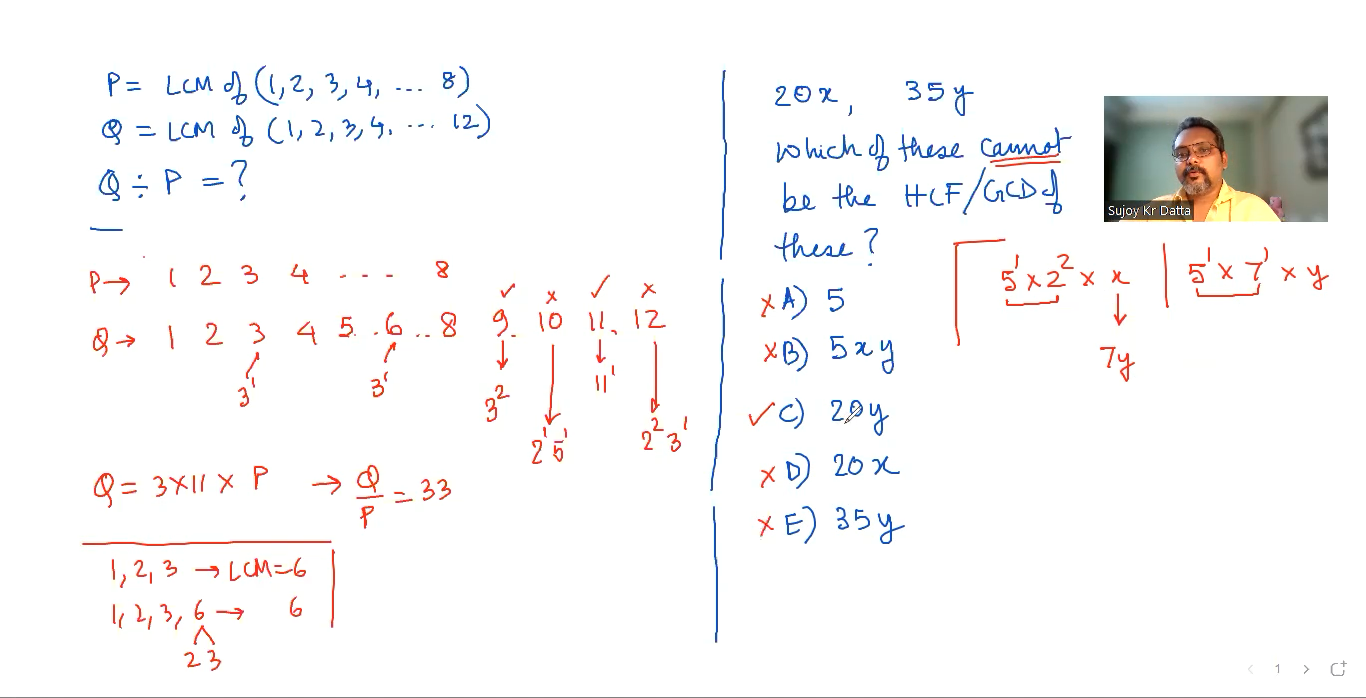 P = LCM of (1, 2, 3, 4, ... 8)
Q = LCM of (1, 2, 3, 4, ... 12)
Q ÷ P = ?
P → 1 2 3 4 ... 8
✓ x ✓ x
Q → 1 2 3 4 5. .6.. 8 9. 10 11, 12
3¹ 3¹ 3² 11¹
2¹5¹ 2² 3¹
Q = 3×11 × P → Q/P = 33
1, 2, 3 → LCM = 6
1, 2, 3, 6 → 6
2 3
20x, 35y
which of these cannot
be the HCF/GCD of
these?
x A) 5
x B) 5xy
✓ C) 20y
x D) 20x
x E) 35y
Sujoy Kr Datta
5¹ × 2² × x | 5¹ × 7¹ × y
7y
1